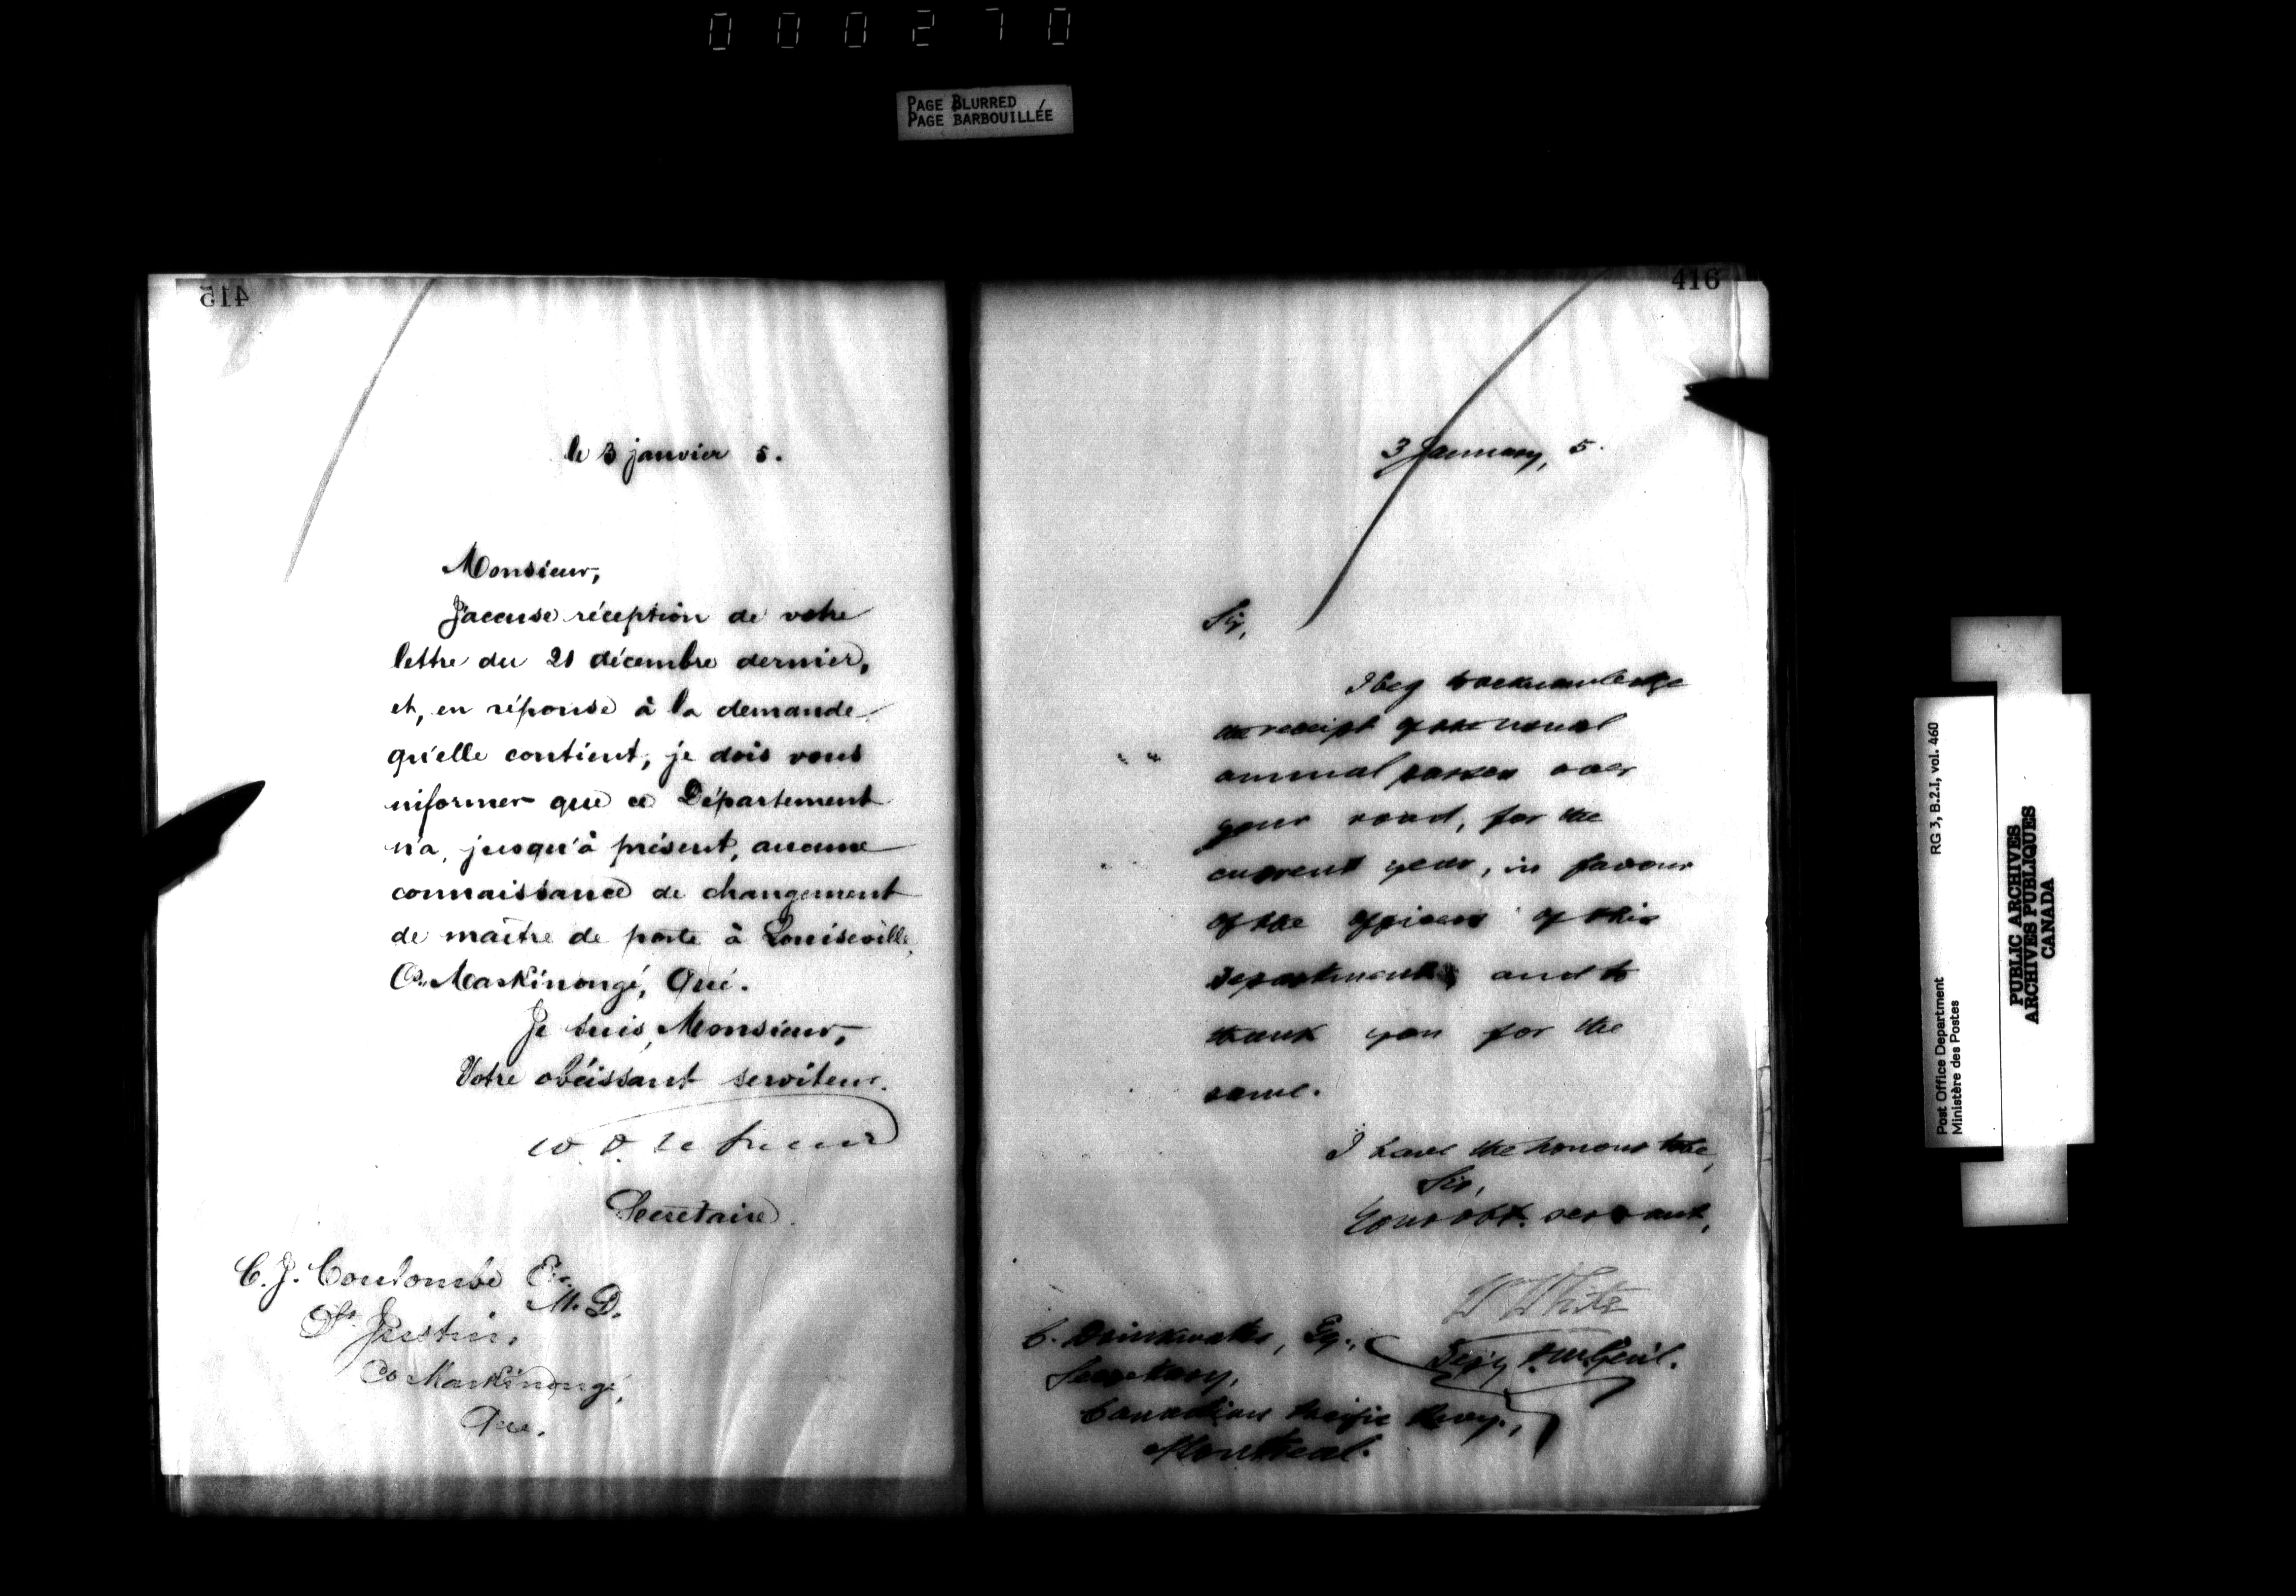 000270
PAGE BLURRED
PAGE BARBOUILLÉE
415
le 3 janvier 5.
Monsieur,
J'accuse réception de votre
lettre du 21 décembre dernier,
et, en réponse à la demande
qu'elle contient, je dois vous
informer que ce Département
n'a, jusqu'à présent, aucune
connaissance de changement
de maître de poste à Louiseville,
Co. Maskinongé, Qué.
Je suis, Monsieur,
Votre obéissant serviteur.
Secretaire.
C. J. Coulombe Er.
M. D.
St. Justin,
Co Maskinongé,
Que.
416
3 January, 5.
Sir,
I beg to acknowledge
the receipt of the usual
annual passes over
your road, for the
current year, in favour
of the officers of this
Department, and to
thank you for the
same.
I have the honour to be,
Sir,
Your obt. servant,
W White
Depy P.M. Genl.
C. Drinkwater, Esq.,
Secretary,
Canadian Pacific Rway.,
Montreal.
Post Office Department
Ministère des Postes
RG 3, B.2.I, vol. 460
PUBLIC ARCHIVES
ARCHIVES PUBLIQUES
CANADA